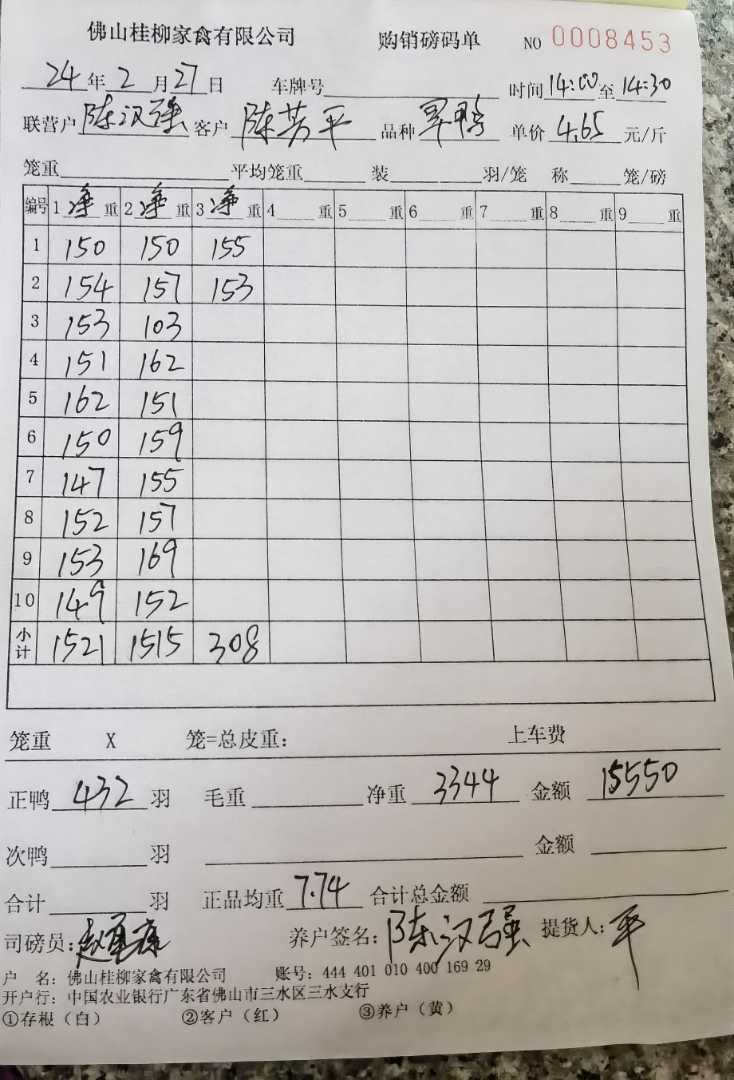 佛山桂柳家禽有限公司 购销磅码单 NO 0008453
24年2月27日 车牌号 时间14:00至14:30
联营户 陈汉强 客户 陈芳平 品种 鸭 单价 4.65 元/斤
笼重 平均笼重 装 羽/笼 称 笼/磅
编号 1 净 重 2 净 重 3 净 重 4 重 5 重 6 重 7 重 8 重 9 重
1 150 150 155
2 154 157 153
3 153 103
4 151 162
5 162 151
6 150 159
7 147 155
8 152 157
9 153 169
10 149 152
小计 1521 1515 308
笼重 X 笼=总皮重: 上车费
正鸭 432 羽 毛重 净重 3344 金额 15550
次鸭 羽 金额
合计 羽 正品均重 7.74 合计总金额
司磅员: 养户签名: 陈汉强 提货人: 平
户 名: 佛山桂柳家禽有限公司 账号: 444 401 010 400 169 29
开户行: 中国农业银行广东省佛山市三水区三水支行
①存根（白） ②客户（红） ③养户（黄）